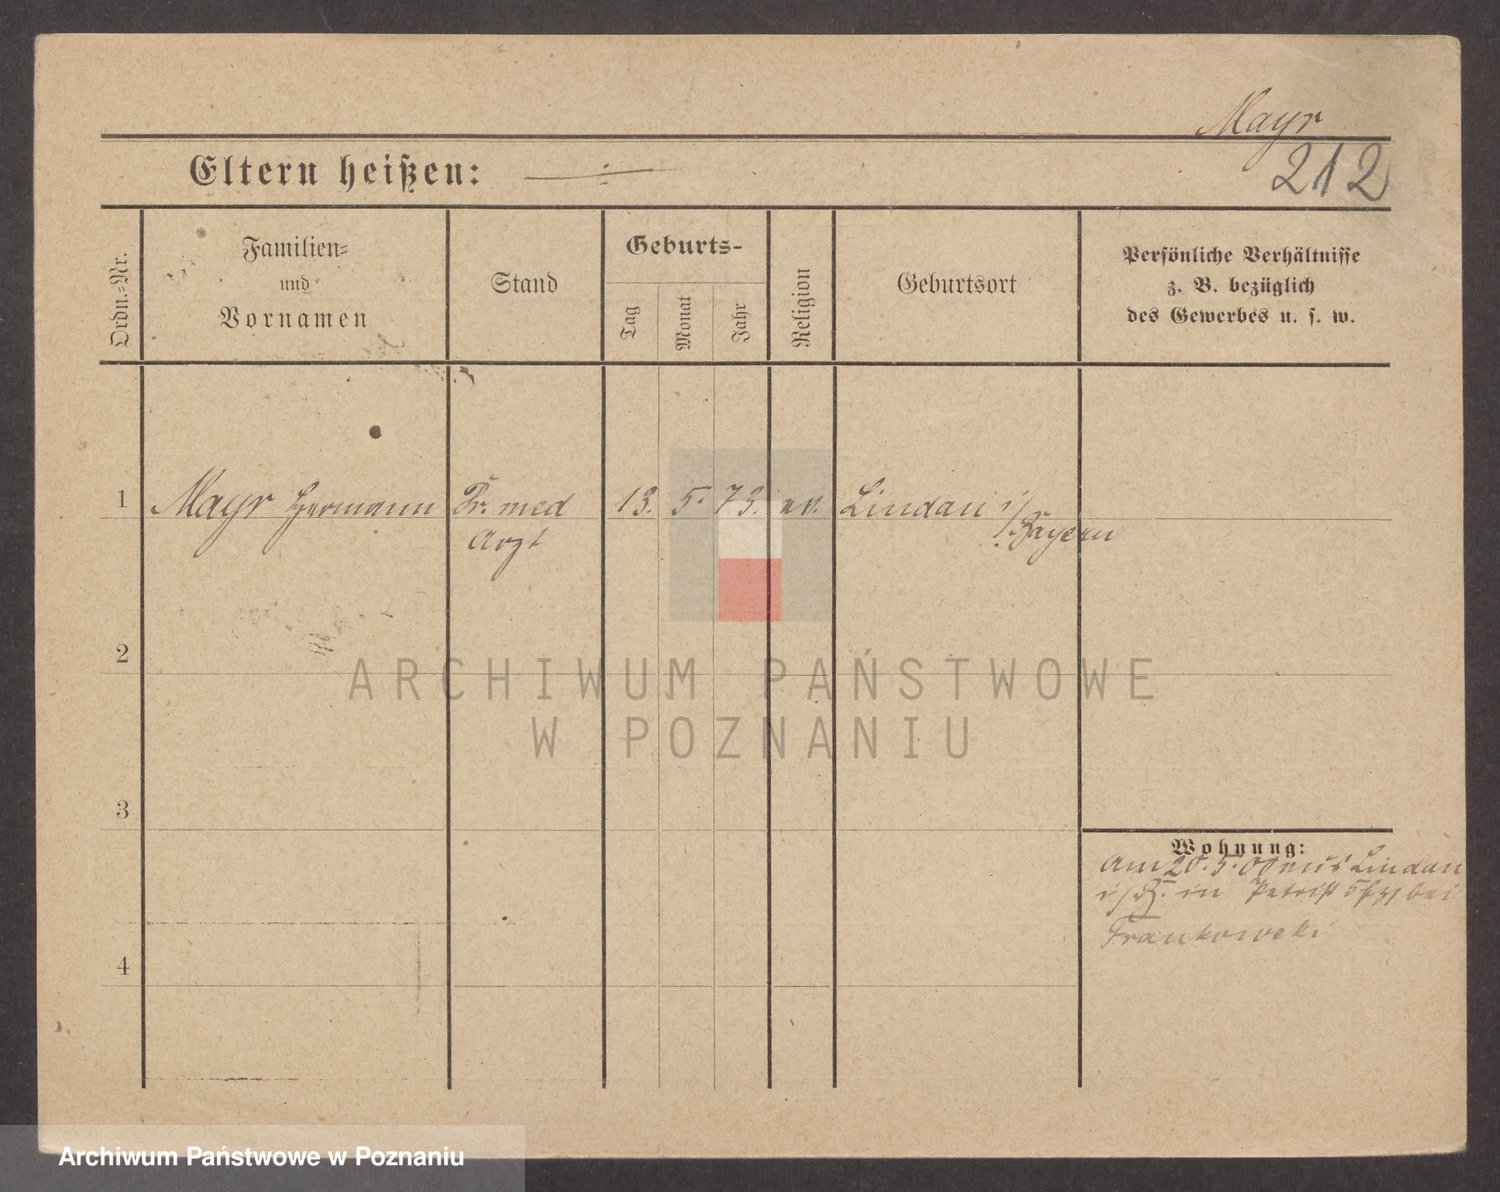 Mayr
212
Eltern heißen: ÷
Ordn.-Nr.
Familien-
und
Vornamen
Stand
Geburts-
Tag
Monat
Jahr
Religion
Geburtsort
Persönliche Verhältnisse
z. B. bezüglich
des Gewerbes u. s. w.
1 Mayr Hermann Dr. med 13. 5. 73. ev. Lindau i/
Arzt Bayern
2
3
4
Wohnung:
am 20.5.00 aus Lindau
in bei
Frankowski
ARCHIWUM PAŃSTWOWE
W POZNANIU
Archiwum Państwowe w Poznaniu